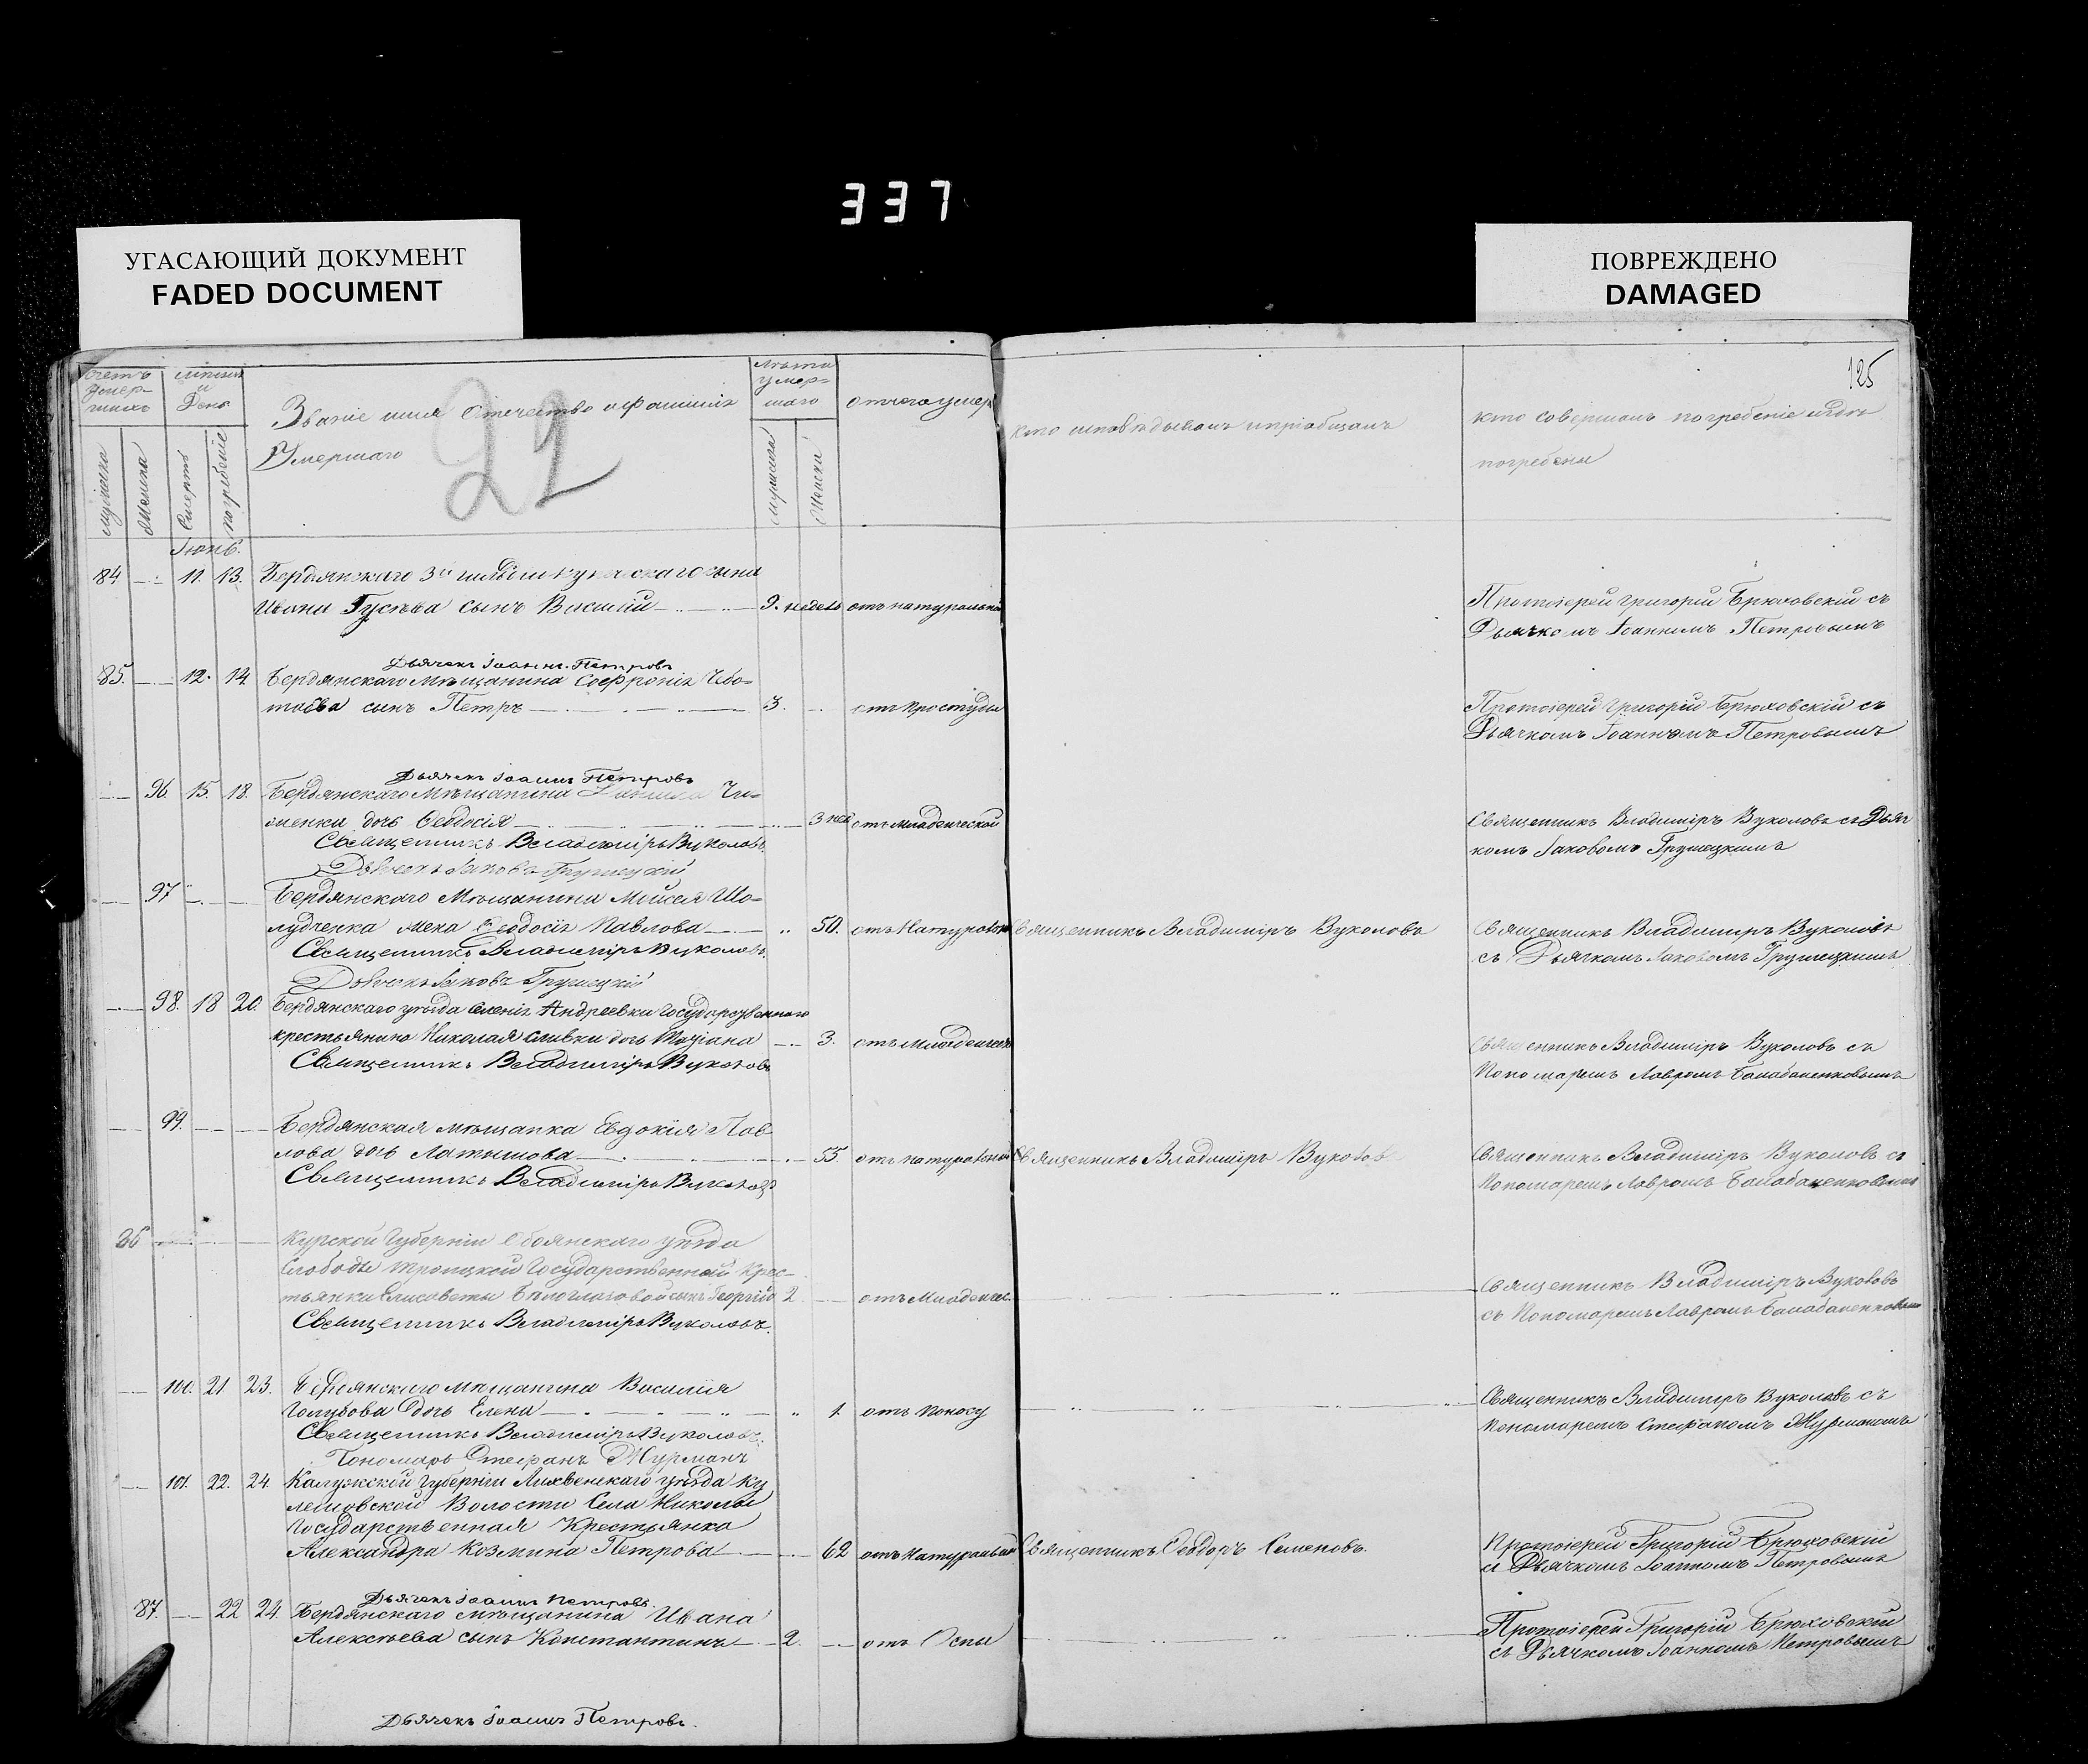 337
УГАСАЮЩИЙ ДОКУМЕНТ
FADED DOCUMENT
ПОВРЕЖДЕНО
DAMAGED
125
22
Счетъ умер-шихъ
Мѣсяцъ и День
Званіе имя отечество и фамилія
Умершаго
Лѣта умер-шаго
отчего умеръ
кто исповѣдывалъ и пріобщалъ
кто совершалъ погребеніе и гдѣ
погребены
мужска
Женска
Смерть
погребеніе
Мужска
Женска
Іюнь.
84 11. 13. Бердянскаго 3й гильдіи купеческаго сына
Ивана Гусѣва сынъ Василій 9. недель отъ натуральной
Протоіерей Григорій Брюховскій съ
Дьячкомъ Іоанномъ Петровымъ
Дьячекъ Іоаннъ Петровъ
85. 12. 14. Бердянскаго Мѣщанина Софронія Чебо-
таева сынъ Петръ 3. отъ простуды
Протоіерей Григорій Брюховскій съ
Дьячкомъ Іоанномъ Петровымъ
Дьячекъ Іоаннъ Петровъ
96. 15. 18. Бердянскаго Мѣщанина
дочь Ѳеодосія 3 нед отъ младенческой
Священникъ Владиміръ Вуколовъ съ Дьяч
комъ Іаковомъ Грушецкимъ
Священникъ Владиміръ Вуколовъ.
Дьячекъ Іаковъ Грушецкій
97 Бердянскаго Мѣщанина Мойсея Шо-
лудченка жена Ѳеодосія Павлова 50. отъ Натуральн Священникъ Владиміръ Вуколовъ
Священникъ Владиміръ Вуколовъ
съ Дьячкомъ Іаковомъ Грушецкимъ
Священникъ Владиміръ Вуколовъ.
Дьячекъ Іаковъ Грушецкій
98. 18 20. Бердянскаго уѣзда селенія Андреевки Государственнаго
крестьянина Николая Сливки дочь 3. отъ младенческ
Священникъ Владиміръ Вуколовъ съ
Пономаремъ Лавромъ Балабаненковымъ
Священникъ Владиміръ Вуколовъ
99. Бердянская мѣщанка Евдокія Пав-
лова дочь Латышова 55. отъ натуральной Священникъ Владиміръ Вуколовъ
Священникъ Владиміръ Вуколовъ съ
Пономаремъ Лавромъ Балабаненковымъ
Священникъ Владиміръ Вуколовъ
86 Курской Губерніи Обоянскаго уѣзда
Слободы Троицкой Государственной Крес-
тьянки Елисаветы Белоглазовой сынъ Георгій 2 отъ Младенчес.
Священникъ Владиміръ Вуколовъ
съ Пономаремъ Лавромъ Балабаненковымъ
Священникъ Владиміръ Вуколовъ.
100. 21. 23. Бердянскаго мѣщанина Василія
Голубова дочь Елена 1. отъ поносу
Священникъ Владиміръ Вуколовъ съ
Пономаремъ Стефаномъ Журманомъ
Священникъ Владиміръ Вуколовъ.
Пономарь Стефанъ Журманъ
101. 22. 24. Калужской Губерніи Лихвенскаго уѣзда Ку
лешовской Волости Села Николы
Государственная Крестьянка
Александра Козмина Петрова 62 отъ Натуральной Священникъ Ѳеодоръ Семеновъ.
Протоіерей Григорій Брюховскій
съ Дьячкомъ Іоанномъ Петровымъ
Дьячекъ Іоаннъ Петровъ.
87. 22 24. Бердянскаго мѣщанина Ивана
Алексѣева сынъ Константинъ 2. отъ Оспы
Протоіерей Григорій Брюховскій
съ Дьячкомъ Іоанномъ Петровымъ
Дьячекъ Іоаннъ Петровъ.